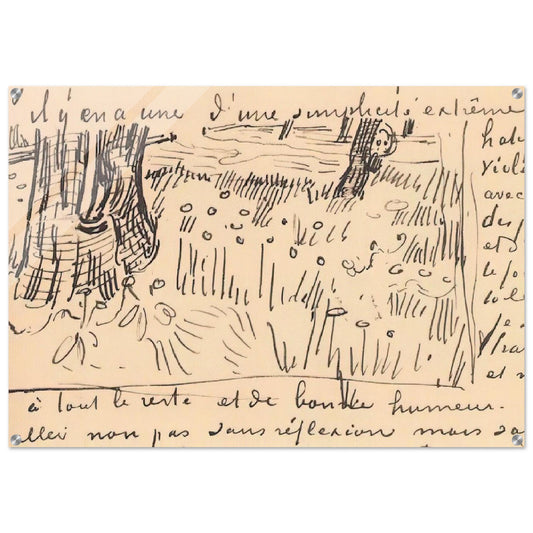 il y en a une d'une simplicité extrême
viol
avec
des
et
à tout le reste et de bonne humeur.
ller non pas sans réflexion mais sa